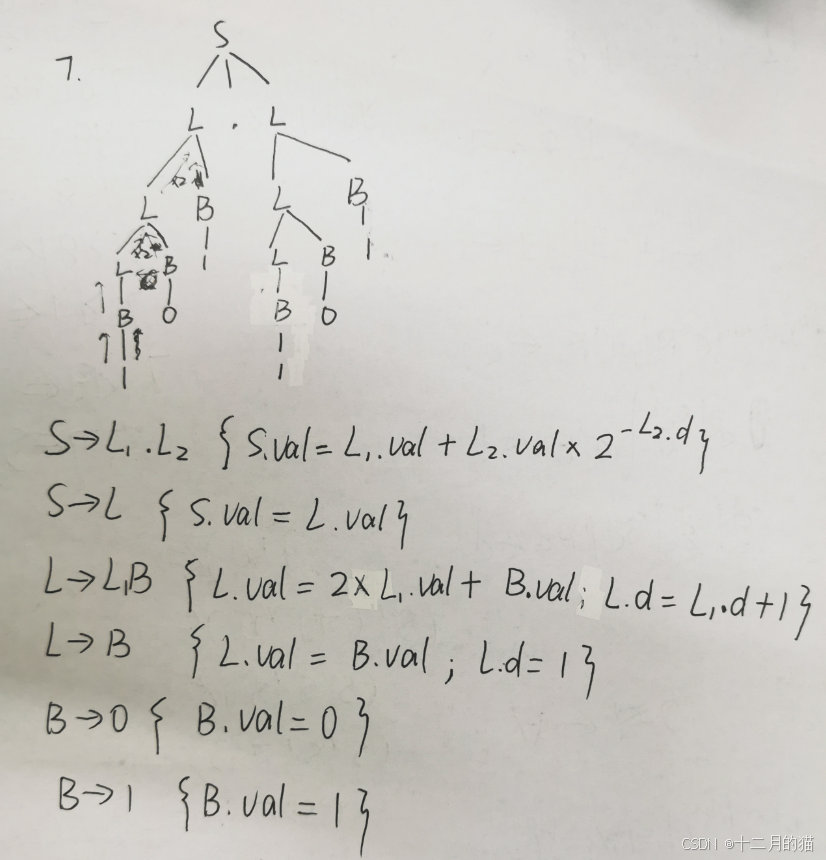 S
7.
L . L
L B L B
L B 1 L B 1
B 0 B 0
1 1
S→L₁.L₂ { S.val = L₁.val + L₂.val × 2^{-L₂.d} }
S→L { S.val = L.val }
L→L₁B { L.val = 2×L₁.val + B.val; L.d = L₁.d+1 }
L→B { L.val = B.val ; L.d = 1 }
B→0 { B.val = 0 }
B→1 { B.val = 1 }
CSDN @十二月的猫